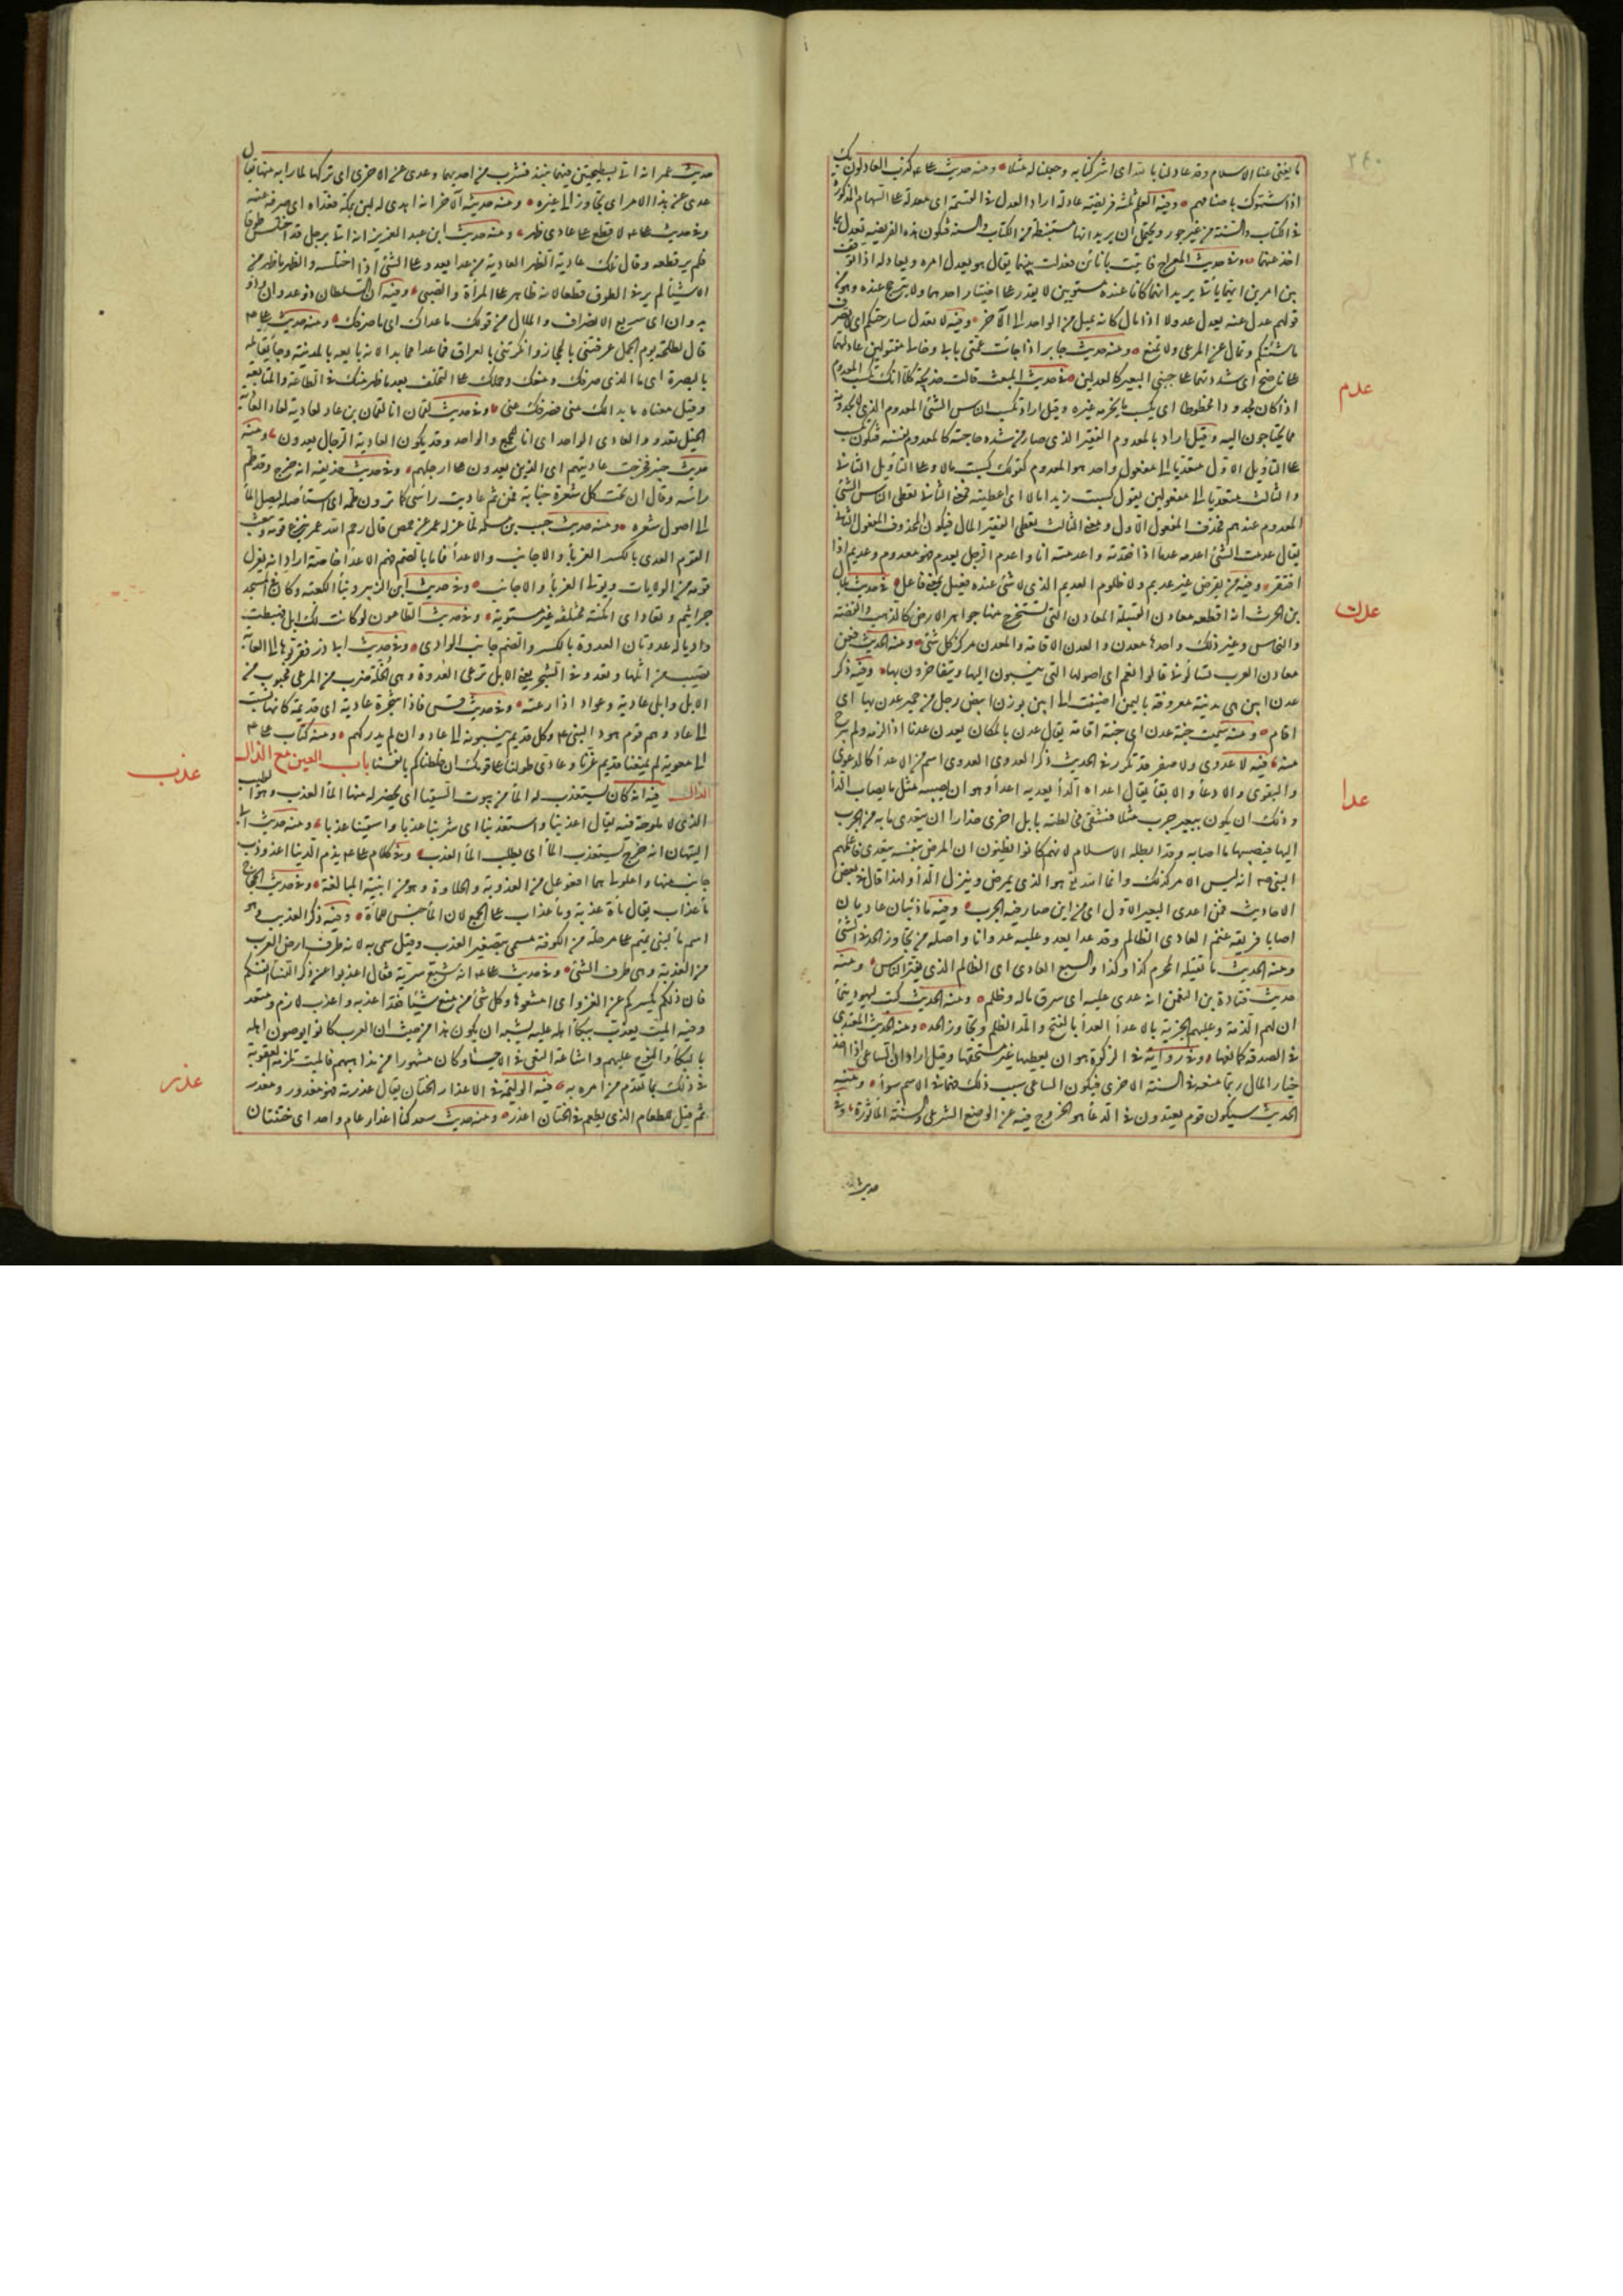 ٢٤٠
ما يغنى عنا الاسلام وقد عدلنا بالله اى اشركنا به وجعلنا له مثلا ومنه حديث على كذب العادلون بك
اذ شبهوك باصنامهم وفيه العلم ثلثة فريضة عادلة اراد العدل فى القسمة اى معدلة على السهام المذكورة
فى الكتاب والسنة من غير جور ويحتمل ان يريد انها مستنبطة من الكتاب والسنة فتكون هذه الفريضة تعدل بما
اخذ عنهما وفى حديث المعراج فاتيت باناءين فعدلت بينهما يقال هو يعدل امره ويعادله اذا توقف
بين امرين ايهما ياتى يريد انهما كانا عنده مستويين لا يقدر على اختيار احدهما ولا يترجح عنده وهو من
قولهم عدل عنه يعدل عدولا اذا مال كانه يميل من الواحد الى الآخر وفيه لا تعدل سارحتكم اى لا تصرف
ماشيتكم وتمال عن المرعى ولا تمنع ومنه حديث جابر اذا جاءت عمتى بابى وخالى مقتولين عادلتهما
على ناضح اى شددتهما على جنبى البعير كالعدلين فى حديث المبعث قالت خديجة كلا انك تكسب المعدوم
عدم
اذا كان مجدودا محظوظا اى يكسب ما يحرمه غيره وقيل اراد تكسب الناس الشئ المعدوم الذى لا يجدونه
مما يحتاجون اليه وقيل اراد بالمعدوم الفقير الذى صار من شدة حاجته كالمعدوم نفسه فيكون تكسب
على التأويل الاول متعديا الى مفعول واحد هو المعدوم كقولك كسبت مالا وعلى التأويل الثانى
والثالث متعديا الى مفعولين يقول كسبت زيدا مالا اى اعطيته فمعنى الثانى تعطى الناس الشئ
المعدوم عندهم فحذف المفعول الاول ومعنى الثالث تعطى الفقير المال فيكون المحذوف المفعول الثانى
يقال عدمت الشئ اعدمه عدما اذا فقدته واعدمته انا واعدم الرجل يعدم فهو معدوم وعديم اذا
افتقر وفيه من يقرض غير عديم ولا ظلوم العديم الذى لا شئ عنده فعيل بمعنى فاعل فى حديث بلال
بن الحرث انه اقطعه معادن القبلية المعادن التى تستخرج منها جواهر الارض كالذهب والفضة
عدن
والنحاس وغير ذلك واحدها معدن والعدن الاقامة والمعدن مركز كل شئ ومنه الحديث فعن
معادن العرب تسألونى قالوا نعم اى اصولها التى ينسبون اليها ويتفاخرون بها وفيه ذكر
عدن ابين هى مدينة معروفة باليمن اضيفت الى ابين بوزن ابيض رجل من حمير عدن بها اى
اقام ومنه سميت جنة عدن اى جنة اقامة يقال عدن بالمكان يعدن عدنا اذا لزمه ولم يبرح
منه فيه لا عدوى ولا صفر قد تكرر فى الحديث ذكر العدوى العدوى اسم من الاعداء كالدعوى
عدا
والبقوى والادعاء والابقاء يقال اعداه الداء يعديه اعداء وهو ان يصيبه مثل ما يصاحب الداء
وذلك ان يكون ببعير جرب مثلا فتتقى مخالطته بابل اخرى حذارا ان يتعدى ما به من الجرب
اليها فيصيبها ما اصابه وقد ابطله الاسلام لانهم كانوا يظنون ان المرض بنفسه يتعدى فاعلمهم
النبى انه ليس الامر كذلك وانما الله هو الذى يمرض وينزل الداء ولهذا قال فى بعض
الاحاديث فمن اعدى البعير الاول اى من اين صار فيه الجرب وفيه ما ذئبان عاديان
اصابا فريقة غنم العادى الظالم وقد عدا يعدو عليه عدوانا واصله من تجاوز الحد فى الشئ
ومنه الحديث ما يقتله المحرم كذا وكذا والسبع العادى اى الظالم الذى يفترس الناس ومنه
حديث قتادة بن النعمن انه عدى عليه اى سرق ماله وظلم ومنه الحديث كتب ليهود تيماء
ان لهم الذمة وعليهم الجزية بلا عداء العداء بالفتح والمد الظلم وتجاوز الحد ومنه الحديث المعتدى
فى الصدقة كمانعها وفى رواية فى الزكوة هو ان يعطيها غير مستحقها وقيل اراد ان الساعى اذا اخذ
خيار المال ربما منعه فى السنة الاخرى فيكون الساعى سبب ذلك فهما فى الاثم سواء ومنه
الحديث سيكون قوم يعتدون فى الدعاء هو الخروج فيه عن الوضع الشرعى والسنة المأثورة وفى
حديث
حديث عمر انه اتى بسطيحتين فيهما نبيذ فشرب من احديهما وعدى عن الاخرى اى تركها لما رابه منها يقال
عدى عن هذا الامر اى تجاوزه الى غيره ومنه حديثه الآخر انه اهدى له لبن بمكة فعداه اى صرفه عنه
وفى حديث على لا قطع على عادى ظهر ومنه حديث ابن عبد العزيز انه اتى برجل قد اختلس طوقا
فلم ير قطعه وقال تلك عادية الظهر العادية من عدا يعدو على الشئ اذا اختلسه والظهر ما ظهر من
الاشياء لم ير فى الطوق قطعا لانه ظاهر على المرأة والصبى وفيه ان السلطان ذو عدوان وذو
بدوان اى سريع الانصراف والملال من قولك ما عداك اى ما صرفك ومنه حديث على
قال لطلحة يوم الجمل عرفتنى بالحجاز وانكرتنى بالعراق فما عدا مما بدا لانه بايعه بالمدينة وجاء يقاتله
بالبصرة اى ما الذى صرفك ومنعك وحملك على التخلف بعد ما ظهر منك فى الطاعة والمتابعة
وقيل معناه ما بدا لك منى فصرفك عنى وفى حديث لقمان انا لقمان بن عاد لعادية لعاد العادية
الخيل تعدو والعادى الواحد اى انا للجمع والواحد وقد يكون العادية الرجال يعدون ومنه
حديث خيبر فخرجت عاديتهم اى الذين يعدون على ارجلهم وفى حديث حذيفة انه خرج وقد طم
رأسه وقال ان تحت كل شعرة جنابة فمن ثم عاديت راسى كما ترون طمه اى استأصله ليصل الماء
الى اصول شعره ومنه حديث حبيب بن مسلمة لما عزله عمر عن حمص قال رحم الله عمر ينزع قومه ويبعث
القوم العدى بالكسر الغرباء والاجانب والاعداء فاما بالضم فهم الاعداء خاصة اراد انه يعزل
قومه من الولايات ويولى الغرباء والاجانب وفى حديث ابن الزبير وبناء الكعبة وكان فى المسجد
جراثيم وتعاد اى امكنة مختلفة غير مستوية وفى حديث الطاعون لو كانت لك ابل فهبطت
واديا له عدوتان العدوة بالكسر والضم جانب الوادى وفى حديث ابى ذر فقربوها الى الغابة
تصيب من اثلها وتعدو فى الشجر يعنى الابل ترعى العدوة وهى الخلة ضرب من المرعى محبوب من
الابل وابل عادية وعواد اذا رعته وفى حديث قس فاذا شجرة عادية اى قديمة كانها نسبت
الى عاد وهم قوم هود النبى وكل قديم ينسبونه الى عاد وان لم يدركهم ومنه كتاب على
الى معوية لم يمنعنا قديم عزنا وعادى طولنا على قومك ان خلطناكم بانفسنا باب العين مع الذال
الذال فيه انه كان يستعذب له الماء من بيوت السقيا اى يحضر له منها الماء العذب وهو الطيب
عذب
الذى لا ملوحة فيه يقال اعذبنا واستعذبنا اى شربنا عذبا واستقينا عذبا ومنه حديث ابى
التيهان انه خرج يستعذب الماء اى يطلب الماء العذب وفى كلام على يذم الدنيا اعذوذب
جانب منها واحلولى هما افعوعل من العذوبة والحلاوة وهو من ابنية المبالغة وفى حديث الحجاج
ماء عذاب يقال ماءة عذبة وماء عذاب على الجمع لان الماء جنس للماءة وفيه ذكر العذيب وهو
اسم ماء لبنى تميم على مرحلة من الكوفة مسمى بتصغير العذب وقيل سمى به لانه طرف ارض العرب
من العذبة وهى طرف الشئ وفى حديث على انه شيع سرية فقال اعذبوا عن ذكر النساء انفسكم
فان ذلكم يكسركم عن الغزو اى امنعوها وكل شئ من منع شيئا فقد اعذبه واعذب لازم ومتعد
وفيه الميت يعذب ببكاء اهله عليه يشبه ان يكون هذا من حيث ان العرب كانوا يوصون اهله
بالبكاء والنوح عليهم واشاعة النعى فى الاحياء وكان مشهورا من مذاهبهم فالميت تلزمه العقوبة
فى ذلك بما تقدم من امره به فيه الوليمة فى الاعذار الاعذار الختان يقال عذرته فهو معذور ومعذر
عذر
ثم قيل للطعام الذى يطعم فى الختان اعذر ومنه حديث سعد كنا اعذار عام واحد اى ختنتان